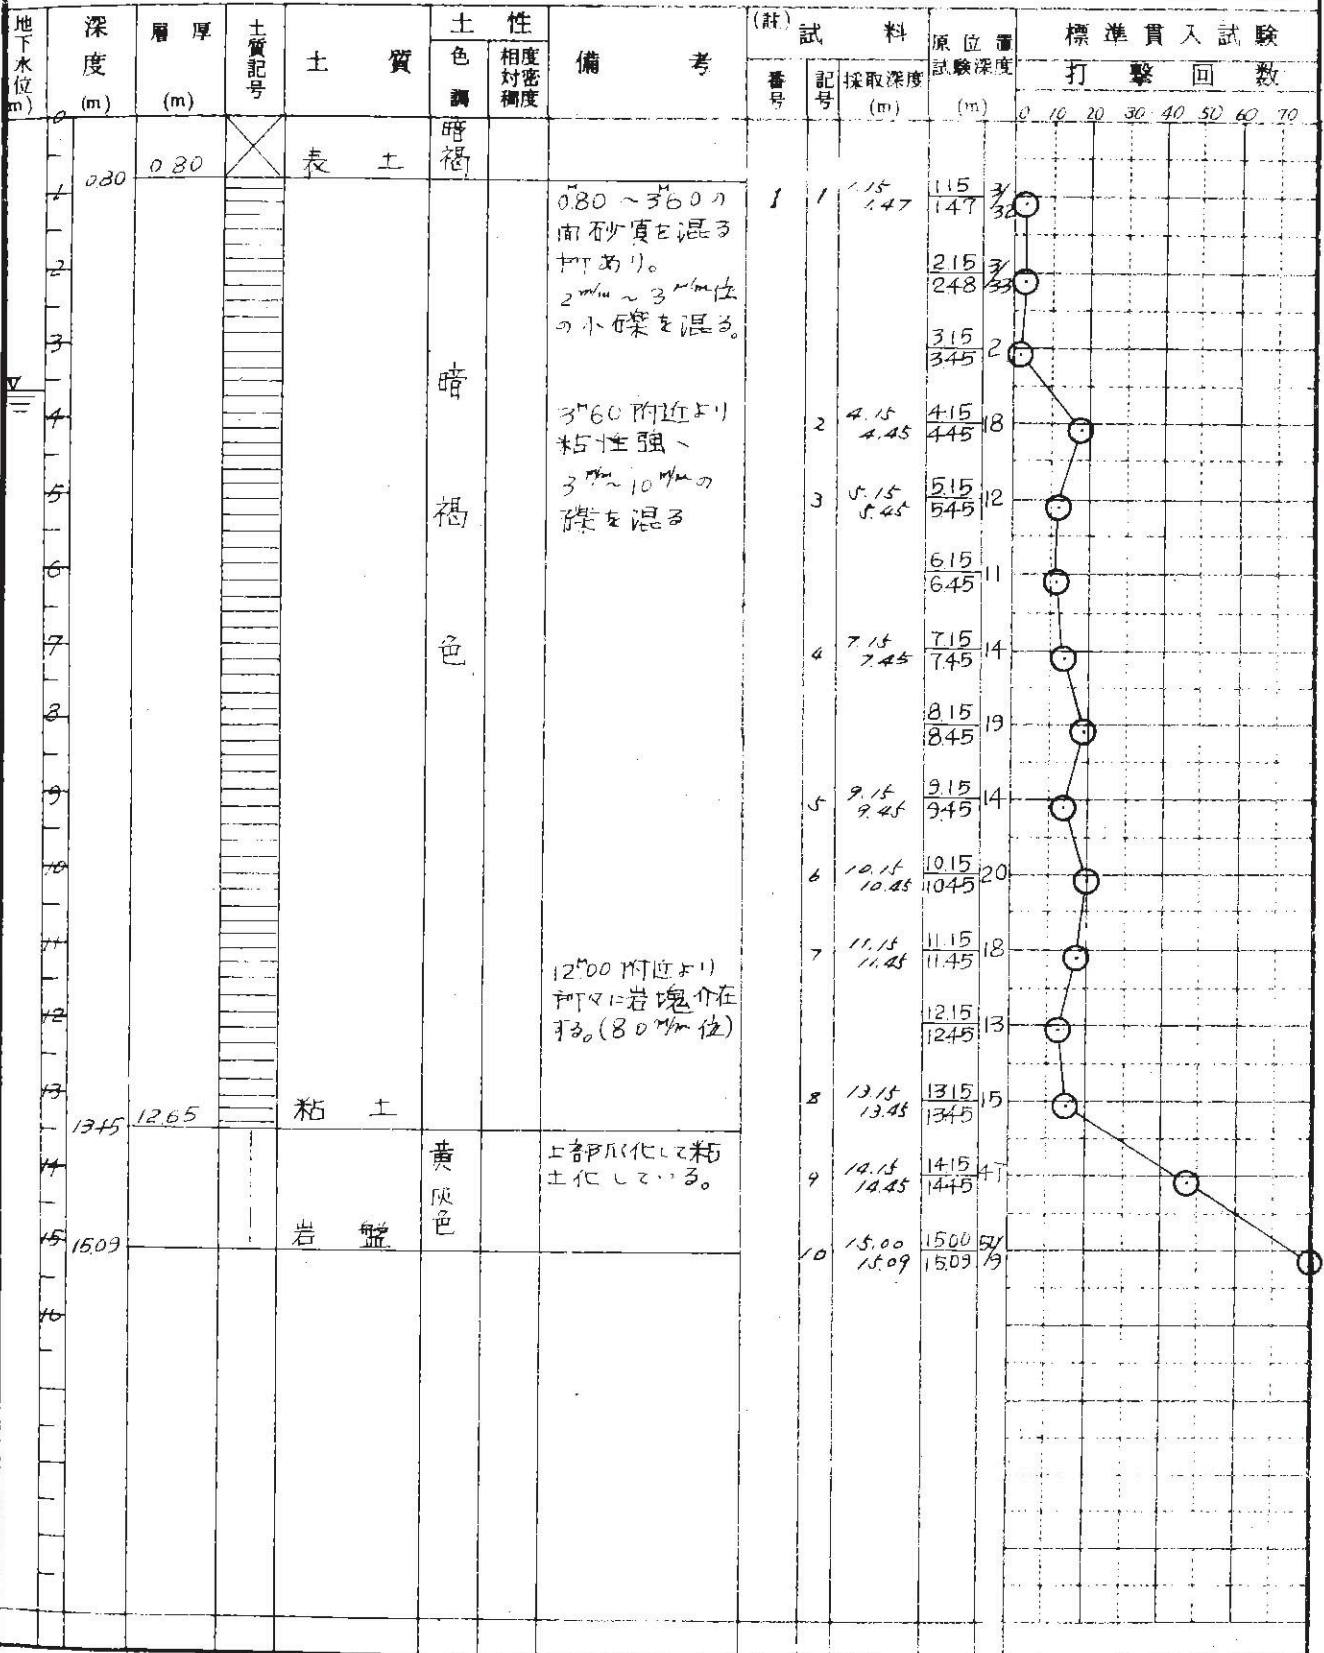 地下水位(m)
深度(m)
層厚(m)
土質記号
土質
土性
色調
相対密度
稠度
備考
(註)
試料
番号
記号
採取深度(m)
原位置試験深度(m)
標準貫入試験
打撃回数
0 10 20 30 40 50 60 70
0
1
2
3
4
5
6
7
8
9
10
11
12
13
14
15
16
0.80 0.80 表土 暗褐
13.45 12.65 粘土 暗褐色
15.09 岩盤 黄灰色
0.M80～3M60の
間砂質を混る
所あり。
2m/m～3m/m位
の小礫を混る。
3M60附近より
粘性強、
3m/m～10m/mの
礫を混る
12M00附近より
所々に岩塊介在
する。(80m/m位)
上部風化して粘
土化している。
1 1 1.15 1.47 1.15 1.47 3/32
2.15 2.48 3/33
3.15 3.45 2
2 4.15 4.45 4.15 4.45 18
3 5.15 5.45 5.15 5.45 12
6.15 6.45 11
4 7.15 7.45 7.15 7.45 14
8.15 8.45 19
5 9.15 9.45 9.15 9.45 14
6 10.15 10.45 10.15 10.45 20
7 11.15 11.45 11.15 11.45 18
12.15 12.45 13
8 13.15 13.45 13.15 13.45 15
9 14.15 14.45 14.15 14.45 47
10 15.00 15.09 15.00 15.09